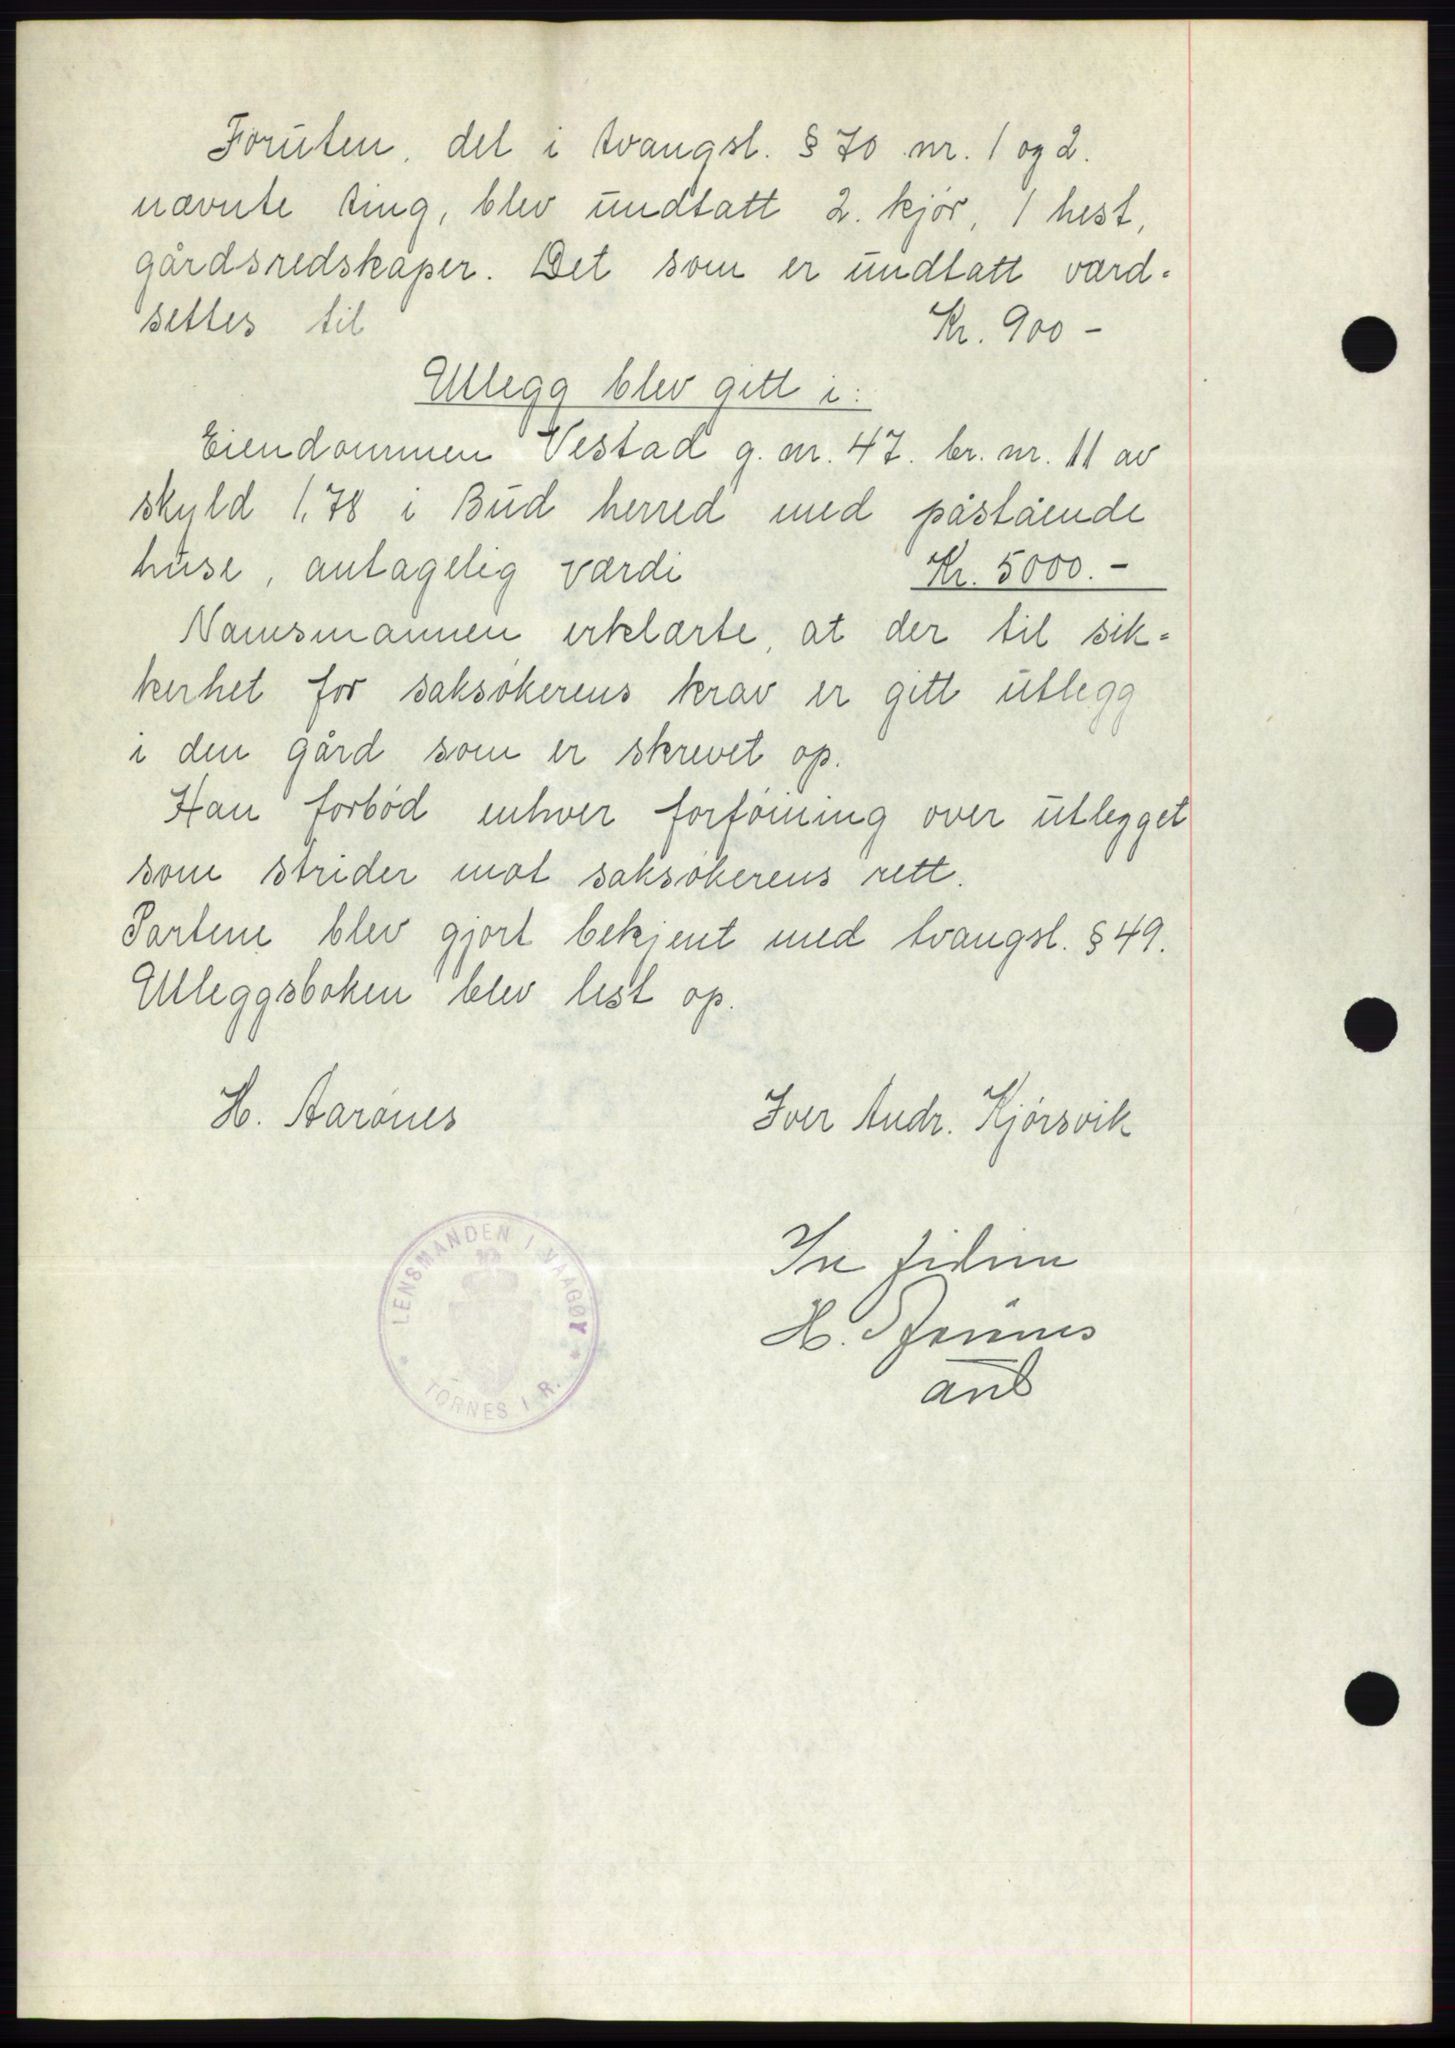 Foruten, det i tvangsl. § 70 nr. 1 og 2.
nævnte ting, blev undtatt 2. kjør, 1 hest,
gårdsredskaper. Det som er undtatt værd-
settes til Kr. 900 -
Utlegg blev gitt i:
Eiendommen Vestad g. nr. 47. br. nr. 11 av
skyld 1,78 i Bud herred med påstående
huse, antagelig værdi Kr. 5000. -
Namsmannen erklærte, at der til sik-
kerhet for saksøkerens krav er gitt utlegg
i den gård som er skrevet op.
Han forbød enhver forføining over utlegget
som strider mot saksøkerens rett.
Partene blev gjort bekjent med tvangsl. § 49.
Utleggsboken blev lest op.
H. Aarønes Iver Andr. Kjørsvik
In fidim
H. Aarønes
LENSMANDEN I VAAGØY
TORNES I R.